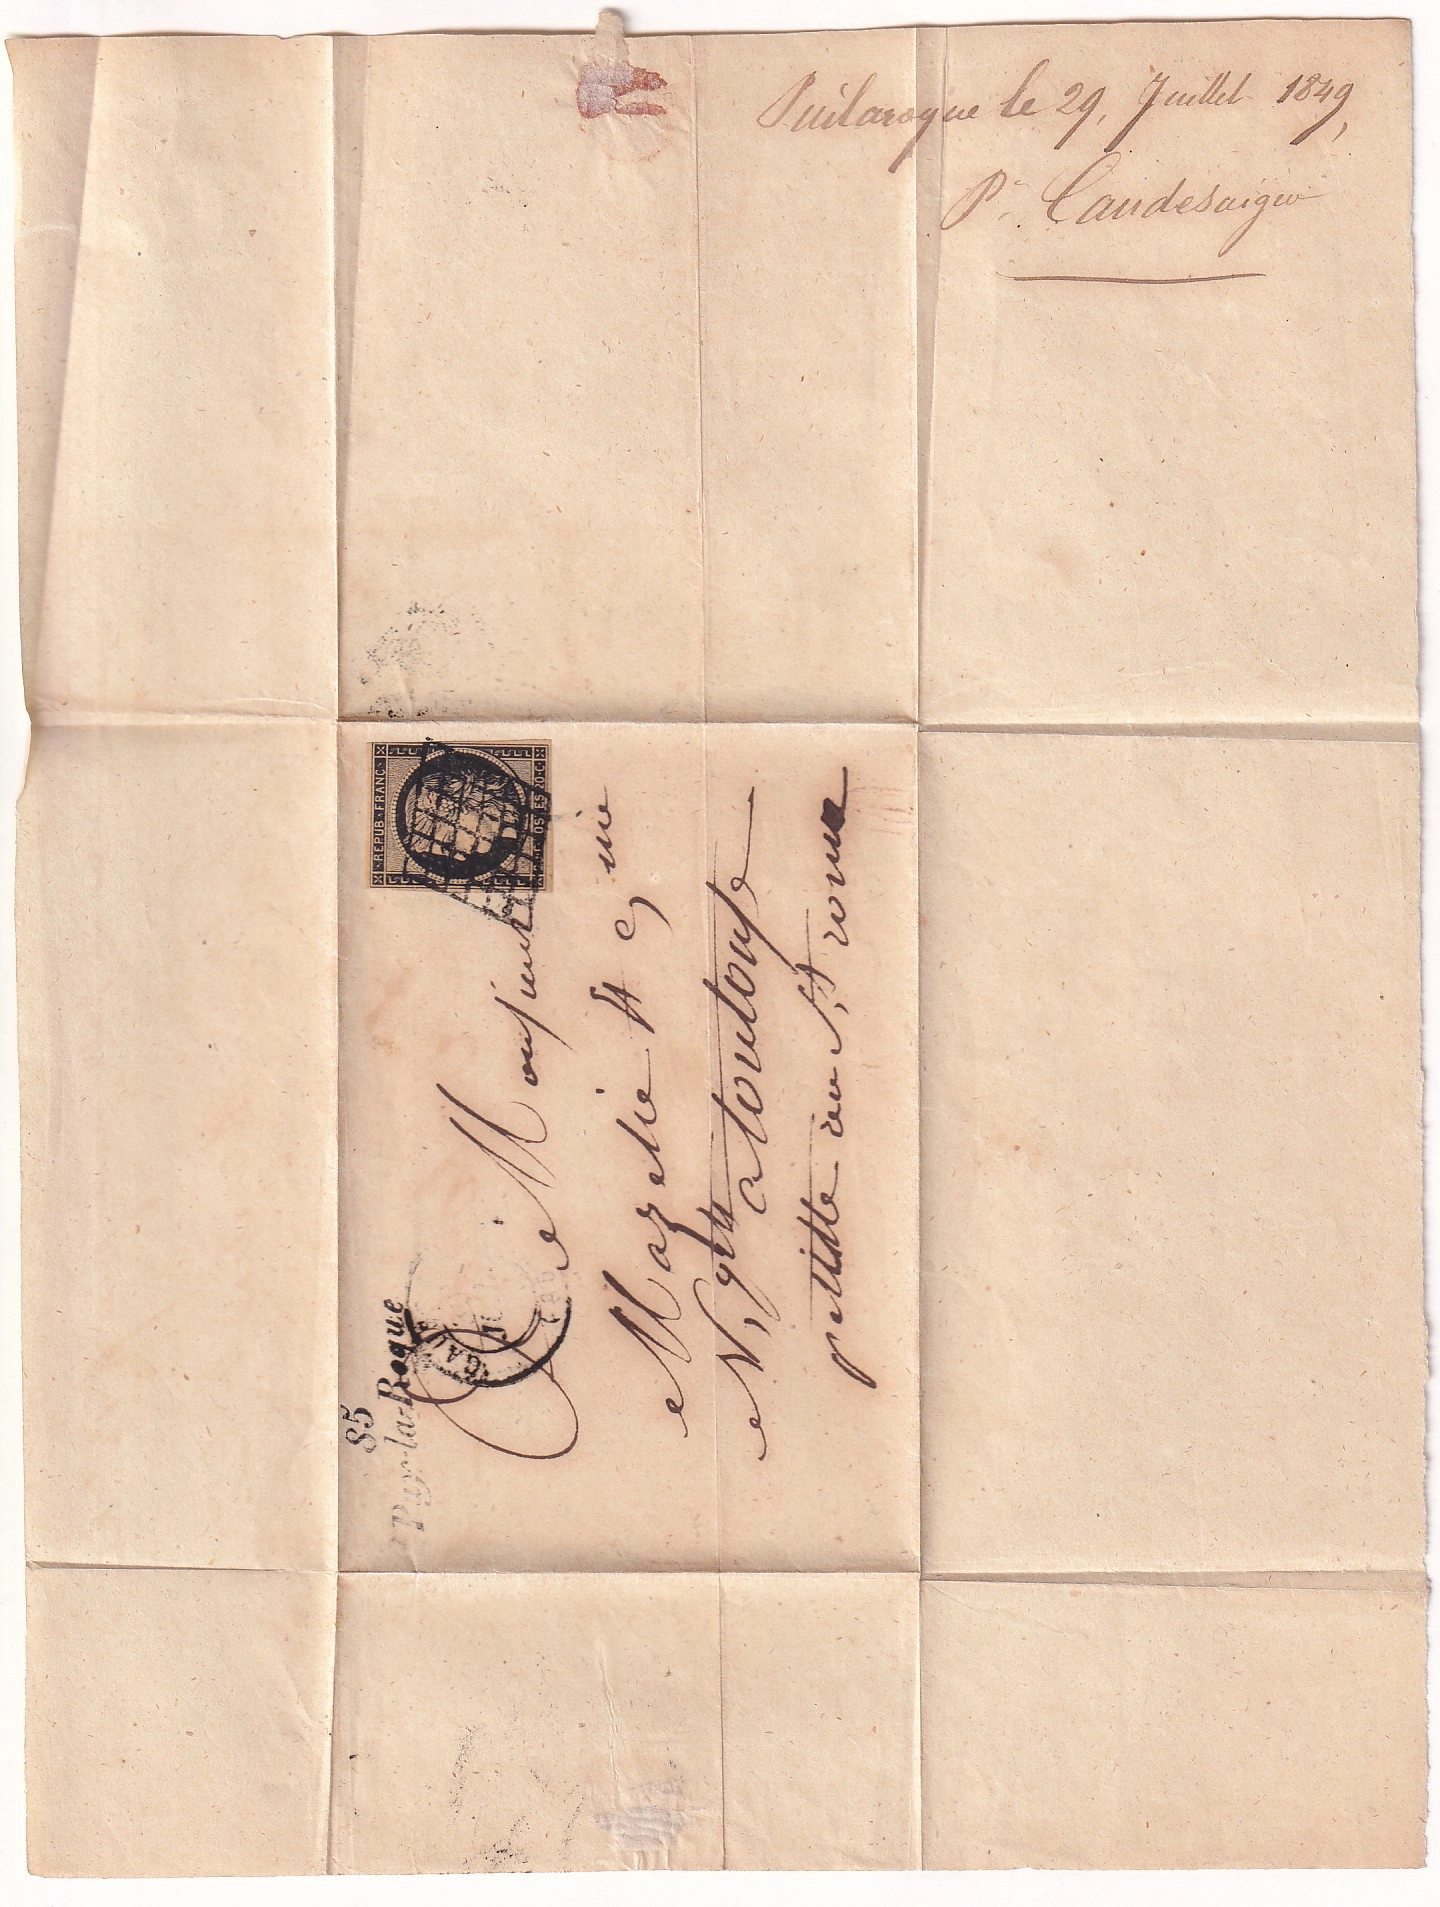 Puilaroque le 29, Juillet 1849,
Pre. Caudesaigue
85
Puy-la-Roque
CAU
REPUB FRANC
20 C
A Monsieur
Mazelie
a toulouse
petitte rue St rome